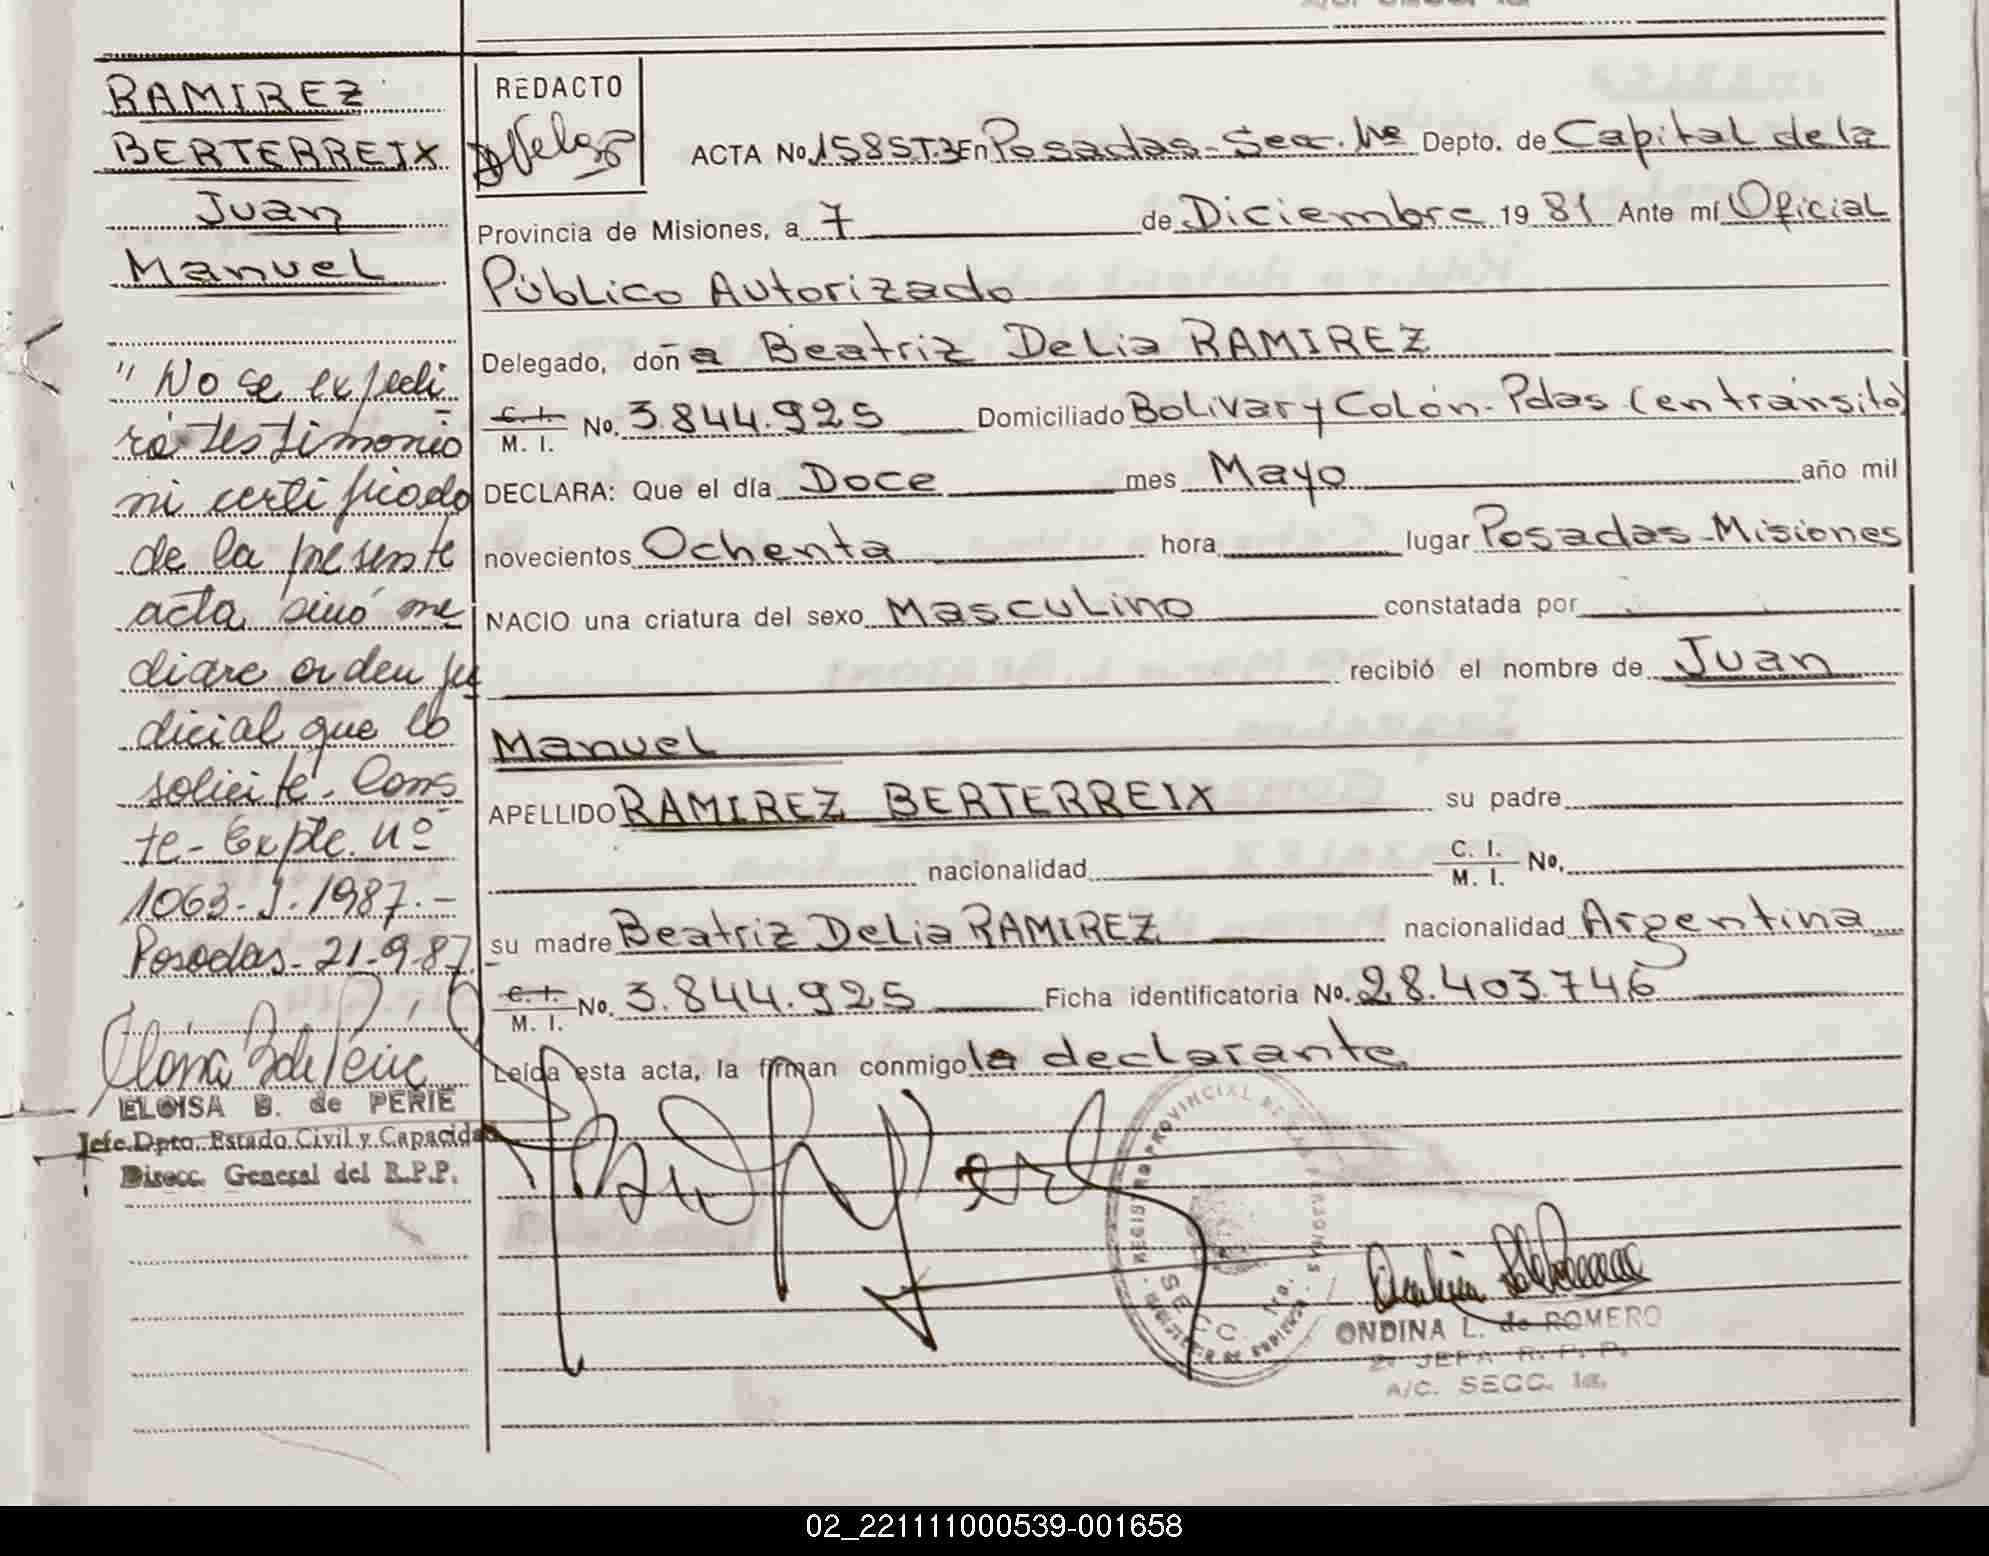 RAMIREZ
BERTERREIX
Juan
Manuel
"No se expedi
rá testimonio
ni certificado
de la presente
acta, sinó me
diare orden ju
dicial que lo
solicite. Cons
te- Expte. Nº
1063-J-1987.-
Posadas-21-9-87.
ELOISA B. de PERIE
Jefe Dpto. Estado Civil y Capacidad
Direcc. General del R.P.P.
REDACTO
ACTA No. 1585T.3 En Posadas-Secc. 1ra Depto. de Capital de la
Provincia de Misiones, a 7 de Diciembre 1981 Ante mí Oficial
Público Autorizado
Delegado, doña Beatriz Delia RAMIREZ
C. I.
M. I. No. 3.844.925 Domiciliado Bolivar y Colón-Pdas (en tránsito)
DECLARA: Que el día Doce mes Mayo año mil
novecientos Ochenta hora lugar Posadas-Misiones
NACIO una criatura del sexo Masculino constatada por
recibió el nombre de Juan
Manuel
APELLIDO RAMIREZ BERTERREIX su padre
nacionalidad C. I.
M. I. No.
su madre Beatriz Delia RAMIREZ nacionalidad Argentina
C. I.
M. I. No. 3.844.925 Ficha identificatoria No. 28.403.746
Leída esta acta, la firman conmigo la declarante
REGISTRO PROVINCIAL DE LAS PERSONAS
SECC. 1ra.
ONDINA L. de ROMERO
2. JEFA R. P. P.
A/C. SECC. 1a.
02_221111000539-001658